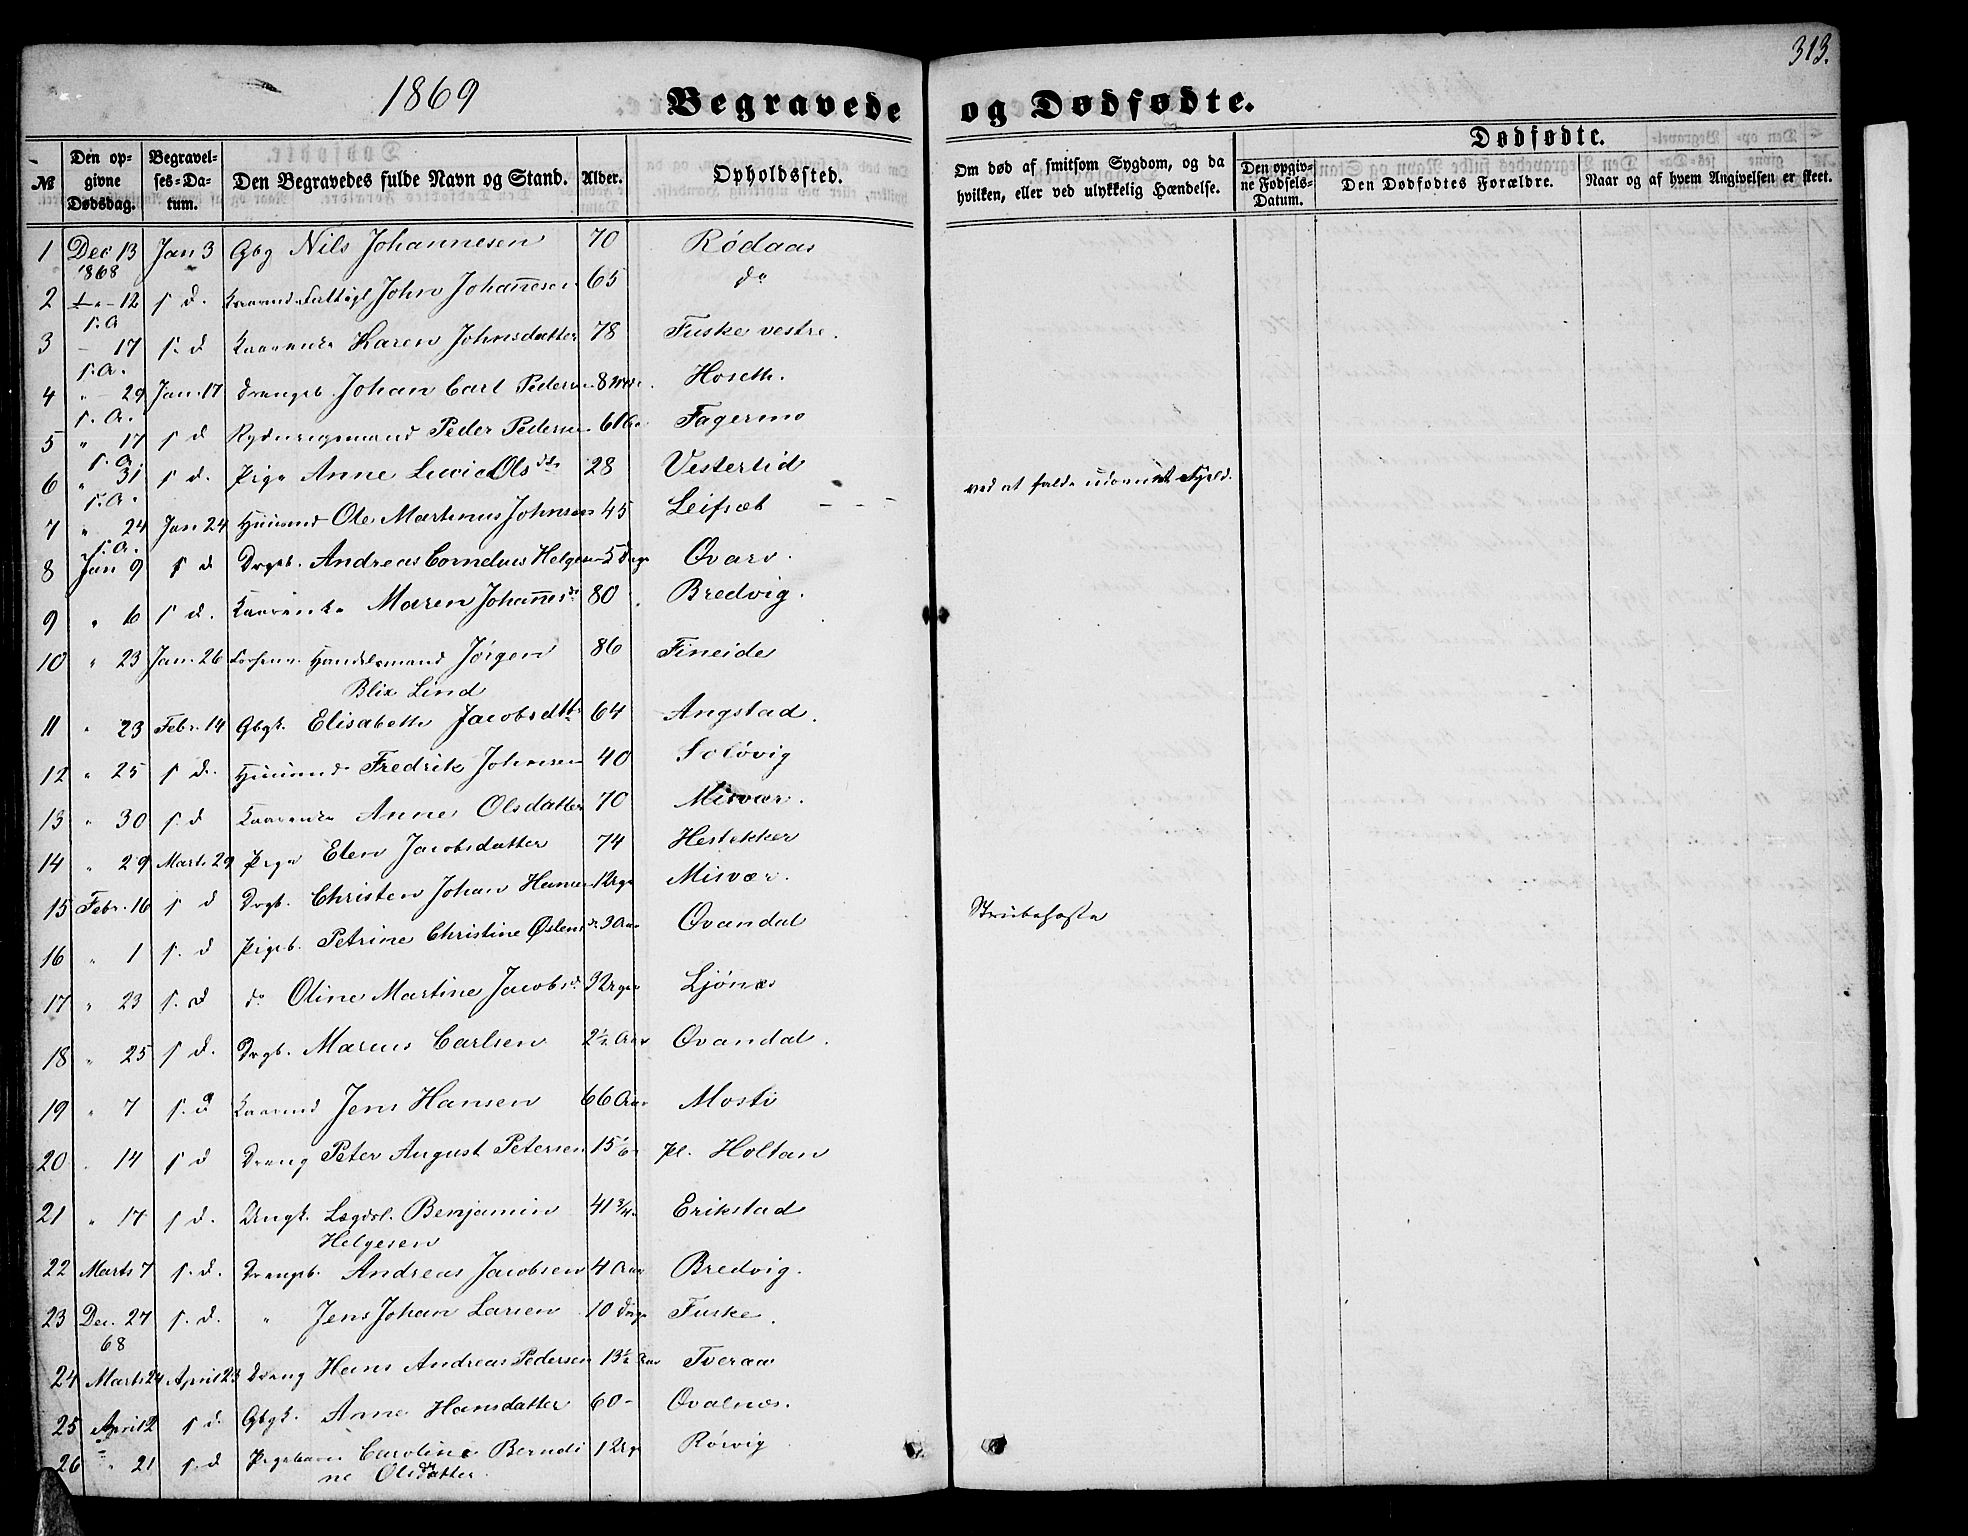 313.
1869
Begravede og Dødfødte.
Dødfødte.
№
Den opgivne Dødsdag.
Begravelses-Datum.
Den Begravedes fulde Navn og Stand.
Alder.
Opholdssted.
Om død af smitsom Sygdom, og da hvilken, eller ved ulykkelig Hændelse.
Den opgivne Fødsels-Datum.
Den Dødfødtes Forældre.
Naar og af hvem Angivelsen er skeet.
1 Dec 13 1868 Jan 3 Gbg Nils Johannesen 70 Rødaas
2 " - 12 s. A s d. John Johañesen 65 do
3 - 17 s. A. s. d Karen Johnsdatter 78 Fuske vestre.
4 " - 29 s. A. Jan. 17 Drengeb. Johan Carl Pedersen 8 Hoseth.
5 " 17 s. A s d Peder Pedersen 61 Fagermo
6 " 31 s. A. s d. Pige Anne Lucie Olsdtr 28 Vesterlid ved at falde udover et Fjeld.
7 " 24 s. A. Jan 24 Huusmd Ole Martinus Johnsen 45 Leifset — -
8 Jan 9 s d Drgeb. Andreas Cornelius Helgesen 5 Dage Qvarv.
9 " 6 s d. Kaarenke Maren Johañesdr 80 Bredvig.
10 " 23 Jan. 26 Handelsmand Jörgen 86 Fineide
Blix Lind
11 " 23 Febr. 14 Gbgk. Elisabeth Jacobsdtr 64 Angstad.
12 " 25 s d. Huusmd Fredrik Johnsen 40 Solövig
13 " 30 s. d Kaarenke Anne Olsdatter 70 Misvær.
14 " 29 Marts 29 Pige Elen Jacobsdatter 74 Hestekker
15 Febr. 16 s d Drgb. Christen Johan Hansen 1 Misvær.
16 " 1 s. d Pigeb. Petrine Christine Østensdr 3 Aar Qvandal Strubehoste
17 " 23 s. d do Oline Martine Jacobsdr 3 Ljönes
18 " 25 s d. Drgb. Marcus Carlsen 2½ Aar Qvandal.
19 " 7 s. d Kaarmd Jens Hansen 66 Aar Mosti
20 " 14 s d Dreng Peter August Petersen 15 pl. Holtan
21 " 17 s d. Ungk. Lægdsl. Benjamin 41 ¾ Erikstad
Helgesen
22 Marts 7 s. d. Drengeb. Andreas Jacobsen 4 Aar Bredvig.
23 Dec. 27 68 s. d. " Jens Johan Larsen 10 Dage Fuske.
24 Marts 24 April 23 Dreng Hans Andreas Pedersen 13½ Aar Tveraa
25 April 2 s d. Gbgk. Anne Hansdatter 60 - Qvalnes.
26 " 21 s. d Pigebarn Caroline Berndi 1 Rörvig
ne Olsdatter.